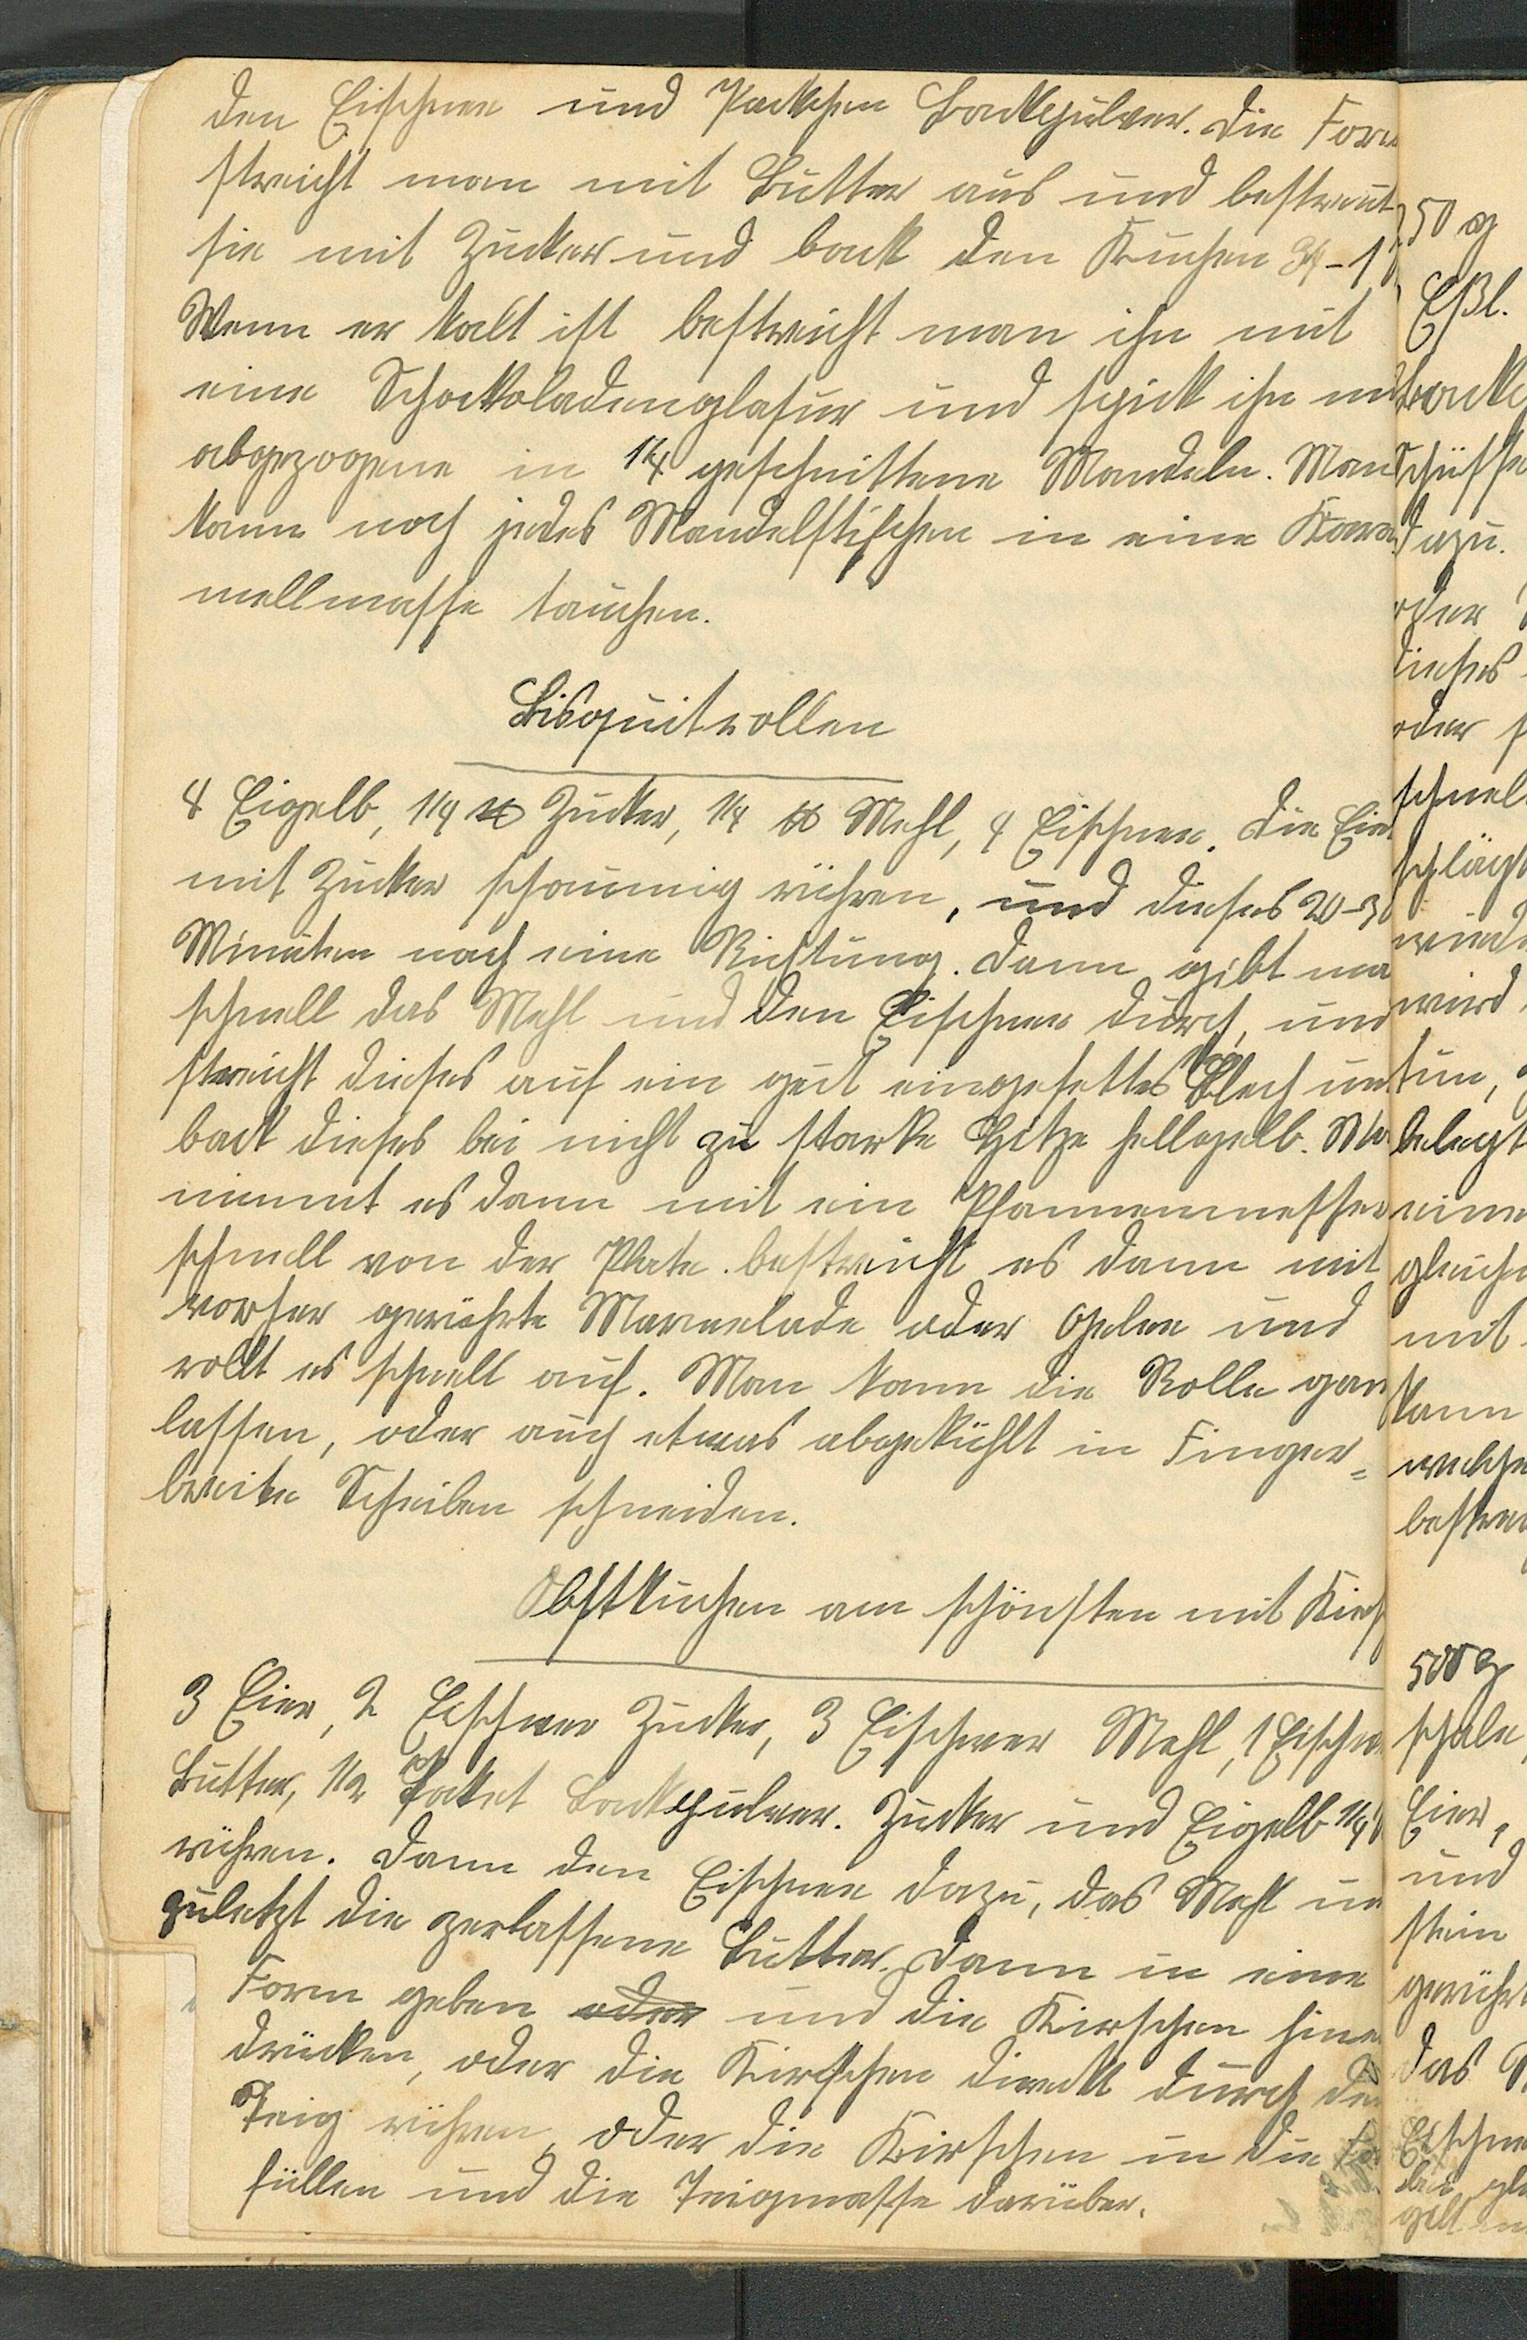 den Eischnee und Päckchen Backpulver. Die Form
streicht man mit Butter aus und bestreut
sie mit Zucker und back den Kuchen 3/4 - 1
Wenn er kalt ist bestreicht man ihn mit
eine Schockoladenglasur und spick ihn mi
abgezogene in 1/4 geschnittene Mandeln. Man
kann noch jedes Mandelstifchen in eine Kara
mellmasse tauchen.
Bisquitrollen
4 Eigelb, 1/4 ℔ Zucker, 1/4 ℔ Mehl, 4 Eischnee. Die Eier
mit Zucker schaumig rühren, und dieses 20-30
Minuten nach eine Richtung. Dann gibt ma
schnell das Mehl und den Eischnee durch, und
streicht dieses auf ein gut eingefettes Blech und
back dieses bei nicht zu starke Hitze hellgelb. Ma
nimmt es dann mit ein Pfannenmesser
schnell von der Plate. bestreicht es dann mit
vorher gerührte Marmelade oder Gelee und
rollt es schnell auf. Man kann die Rolle gan
lassen, oder auch etwas abgekühlt in Finger=
breite Scheiben schneiden.
Obstkuchen am schönsten mit Kirsch
3 Eier, 2 Eischwer Zucker, 3 Eischwer Mehl, 1 Eischwe
Butter, 1/2 Paket Backpulver. Zucker und Eigelb 1/4
rühren. Dann den Eischnee dazu, das Mehl un
zuletzt die zerlassene Butter. Dann in eine
Form geben oder und die Kirschen hine
drücken, oder die Kirschen direckt durch de
Teig rühren, oder die Kirschen in die Fo
füllen und die Teigmasse darüber.
50 g
Eßl.
backp
Schüsse
dazu.
oder
dieses
oder s
schnel
schlägt
wiede
wird
tun,
belegt
eine
gleiche
mit
kann
welche
bestreu
500 g
schale,
Eier,
und
stein
gerührt
das M
Eischne